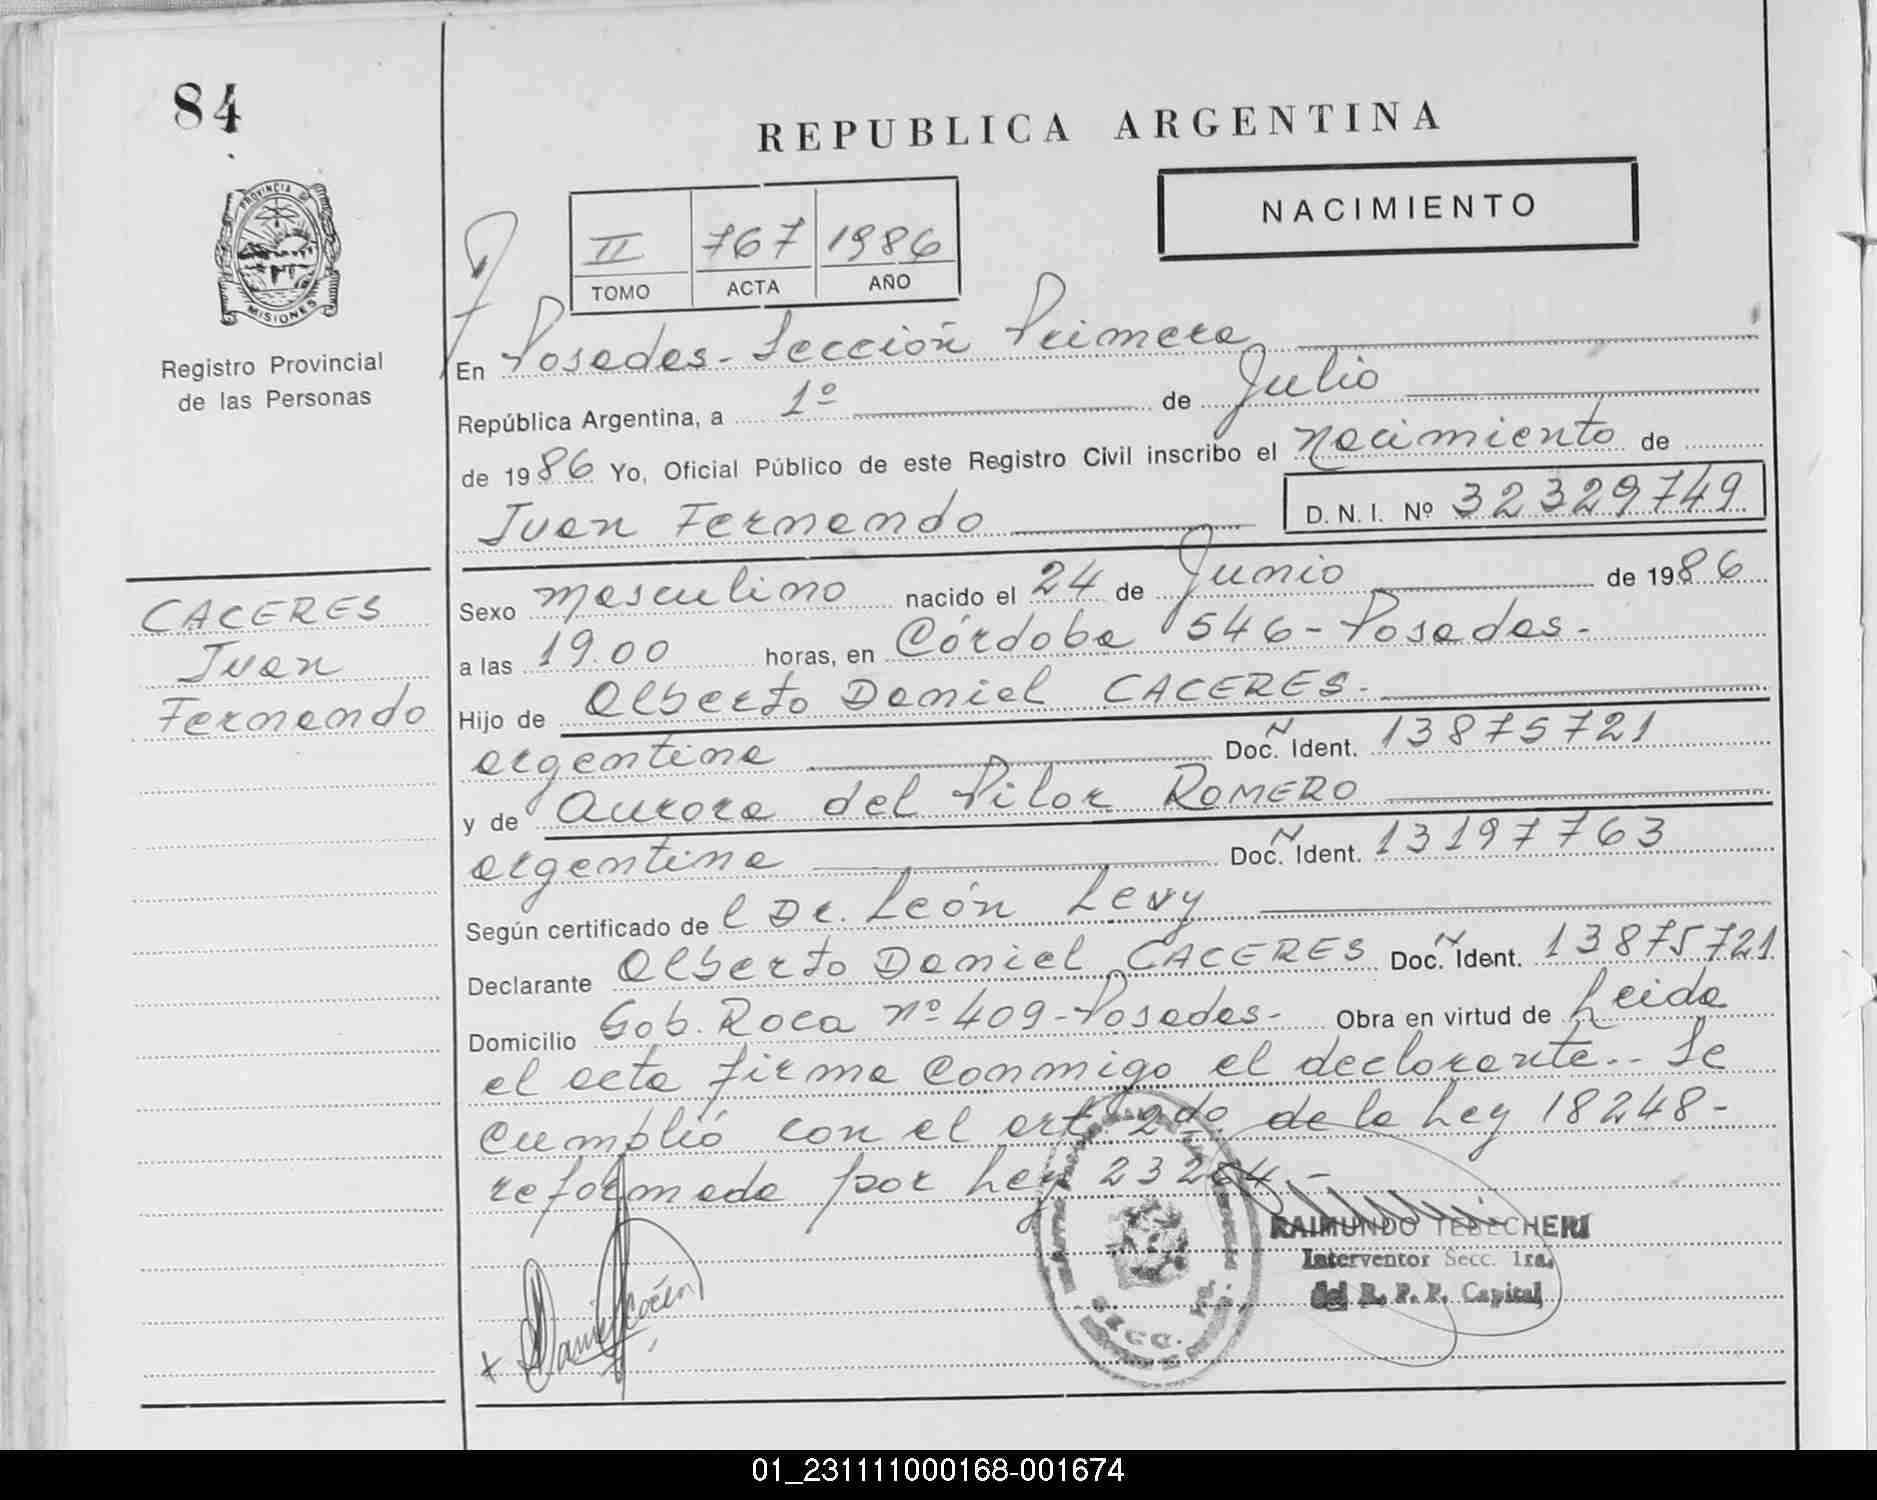 84
REPUBLICA ARGENTINA
NACIMIENTO
II 767 1986
TOMO ACTA AÑO
PROVINCIA DE
MISIONES
Registro Provincial
de las Personas
En Posadas - Sección Primera
República Argentina, a 1º de Julio
de 1986 Yo, Oficial Público de este Registro Civil inscribo el nacimiento de
Juan Fernando D. N. I. Nº 32329749
CACERES
Juan
Fernando
Sexo masculino nacido el 24 de Junio de 1986
a las 19.00 horas, en Córdoba 546 - Posadas -
Hijo de Alberto Daniel CACERES -
argentina Doc. Ident. 13875721
y de Aurora del Pilar ROMERO
argentina Doc. Ident. 13197763
Según certificado de l Dr. León Levy
Declarante Alberto Daniel CACERES Doc. Ident. 13875721
Domicilio Gob. Roca nº 409 - Posadas - Obra en virtud de Leida
el acta firma conmigo el declarante.. Se
cumplió con el art. 2do. de la Ley 18248 -
reformada por Ley 23264 . -
RAIMUNDO TEBECHERI
Interventor Secc. 1ra.
del R. P. P. Capital
SECC.
01_231111000168-001674